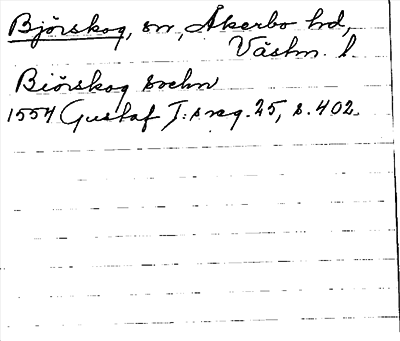 Björskog, sn, Åkerbo hd,
Västm. l.
Biörskog sochn
1554 Gustaf I: s reg. 25, s. 402.